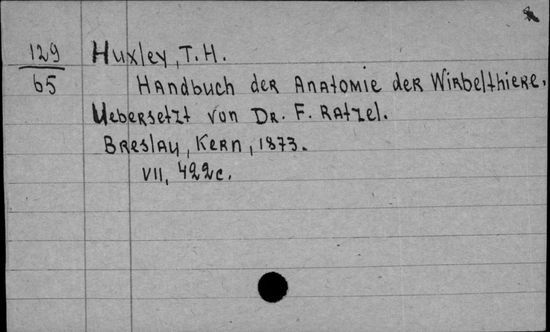 129
65
Huxley, T. H.
Handbuch der Anatomie der Wirbelthiere.
Uebersetzt von Dr. F. Ratzel.
Breslau, Kern, 1873.
VII, 422c.